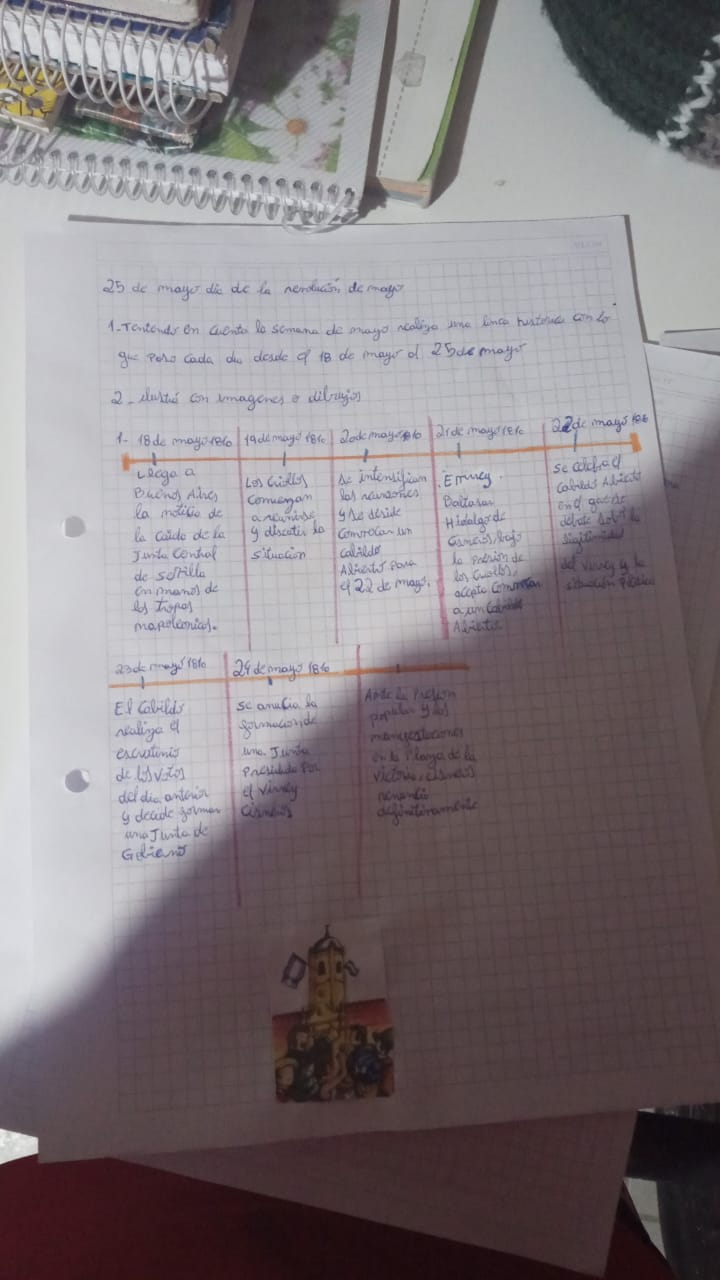 25 de mayo dia de la revolución de mayo
1-Teniendo en cuenta la semana de mayo realiza una linea historica con lo
que paso cada dia desde el 18 de mayo al 25 de mayo
2- ilustrá con imagenes o dibujos
1- 18 de mayo 1810
Llega a
Buenos Aires
la noticia de
la caida de la
Junta Central
de sevilla
en manos de
las tropas
napoleonicas.
19 de mayo 1810
Los Criollos
Comienzan
a reunirse
y discutir la
situacion
20 de mayo 1810
Se intensifican
las reuniones
y se deside
Convocar un
cabildo
Abierto para
el 22 de mayo.
21 de mayo 1810
Baltasar
Hidalgo de
Cisneros, bajo
la Presion de
los Criollos,
acepta Convocar
a un Cabildo
Abierto
22 de mayo 1810
se celebra el
Cabildo Abierto
en el que se
debate sobre la
del virrey y la
situacion Politica
23 de mayo 1810
El Cabildo
realiza el
escrutinio
de los votos
del dia anterior
y decide formar
una Junta de
Gobierno
24 de mayo 1810
se anucia la
formacion de
una Junta
Presidida Por
el Virrey
Cisneros
Ante la Presion
popular y las
manifestaciones
en la Plaza de la
Victoria, Cisneros
renunció
definitivamente